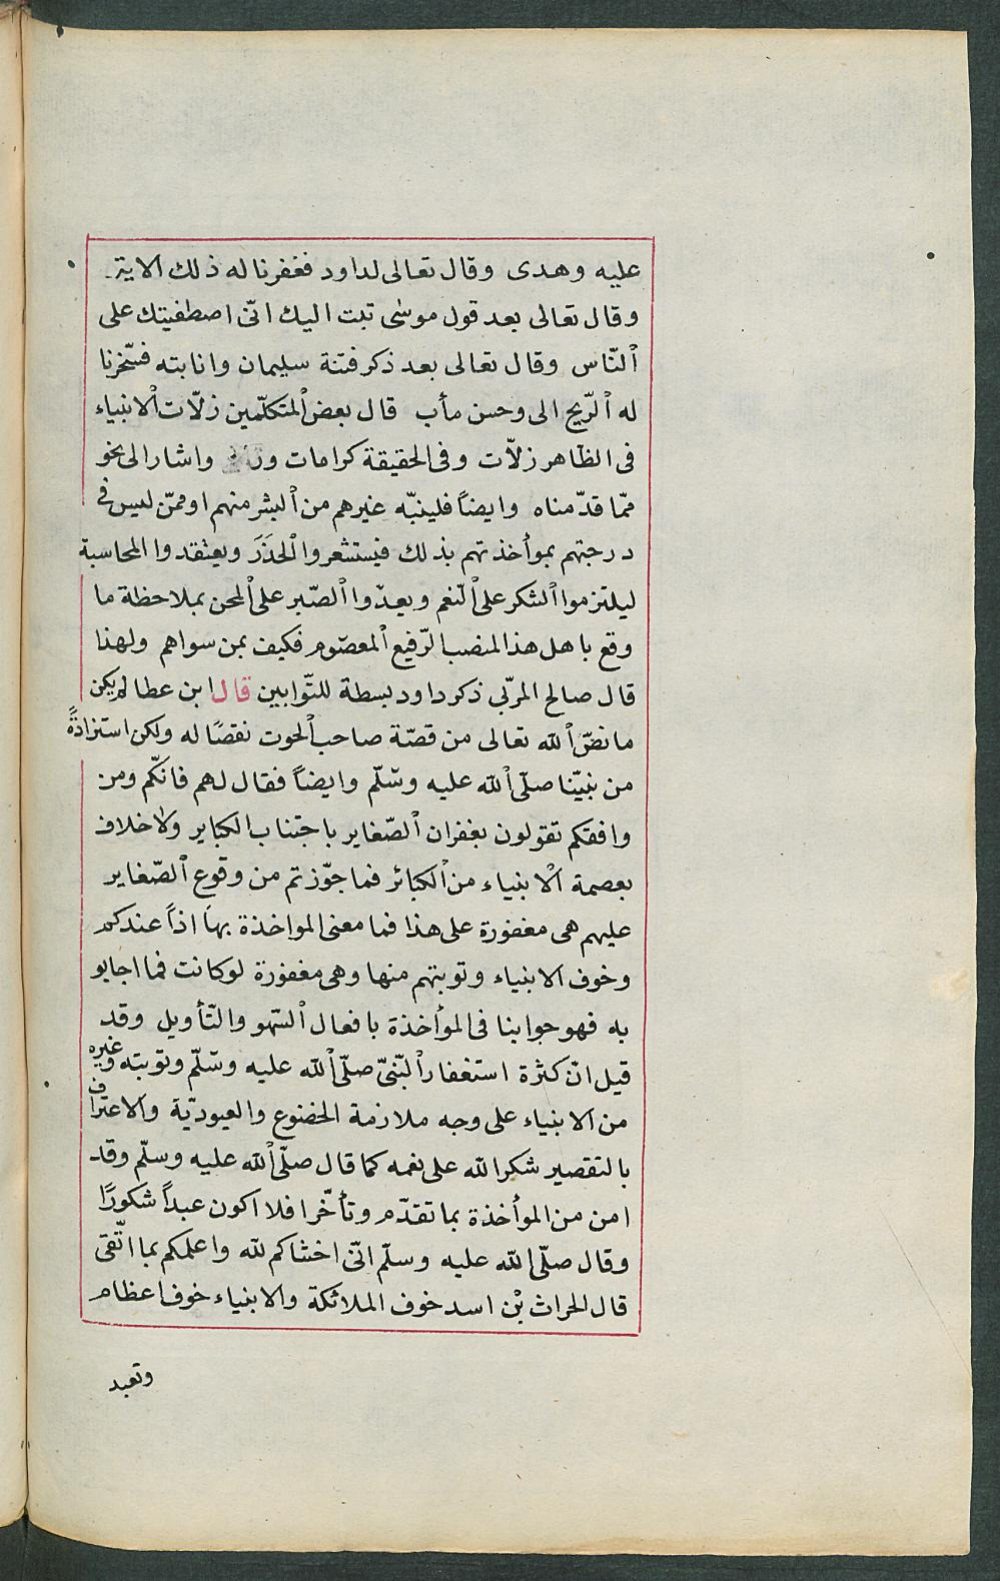 عليه وهدى وقال تعالى لداود فغفرنا له ذلك الاية
وقال تعالى بعد قول موسٰى تبت اليك انّى اصطفيتك على
ٱلنّاس وقال تعالى بعد ذكر فتنة سليمان وانابته فسّخرنا
له ٱلرّيح الى وحسن مأب قال بعض ٱلمتكلّمين زلّات ٱلانبياء
فى الظاهر زلّات وفى الحقيقة كرامات واشار الى نحو
ممّا قدّمناه وايضاً فلينبّه غيرهم من ٱلبشر منهم او ممّن ليس فى
درجتهم بموأخذتهم بذلك فيستشعروا ٱلحَذَرَ ويعتقدوا المحاسبة
ليلتزموا ٱلشكر على ٱلنّعم ويعدّوا ٱلصّبر على ٱلمحن بملاحظة ما
وقع باهل هذا المنصب الرّفيع ٱلمعصوم فكيف بمن سواهم ولهذا
قال صالح المرّبى ذكر داود بسطة للتّوابين قال ابن عطا لم يكن
ما نصّ ٱلله تعالى من قصّة صاحب ٱلحوت نقصًا له ولكن استزادةً
من نبيّنا صلّى ٱلله عليه وسّلّم وايضاً فقال لهم فانّكم ومن
وافقكم تقولون بغفران ٱلصّغاير باجتناب الكباير ولا خلاف
بعصمة ٱلانبياء من ٱلكبائر فما جوّزتم من وقوع ٱلصّغاير
عليهم هى مغفورة على هذا فما معنى المواخذة بها اذاً عندكم
وخوف الانبياء وتوبتهم منها وهى مغفورة لو كانت فما اجابو
به فهو جوابنا فى الموأخذة بافعال ٱلسّهو والتّأويل وقد
قيل انّ كثرة استغفار ٱلنّبىّ صلّى ٱلله عليه وسّلّم وتوبته وغيره
من الانبياء على وجه ملازمة الخضوع والعبوديّة والاعتراف
بالتقصير شكرا لله على نعمه كما قال صلّى ٱلله عليه وسلّم وقد
امن من الموأخذة بما تقدّم وتأخّر افلا اكون عبداً شكورًا
وقال صلّى الله عليه وسلّم انّى اخشاكم لله واعلمكم بما اتّقى
قال الحراث بْن اسد خوف الملائكة والانبياء خوف اعظام
وتعبد